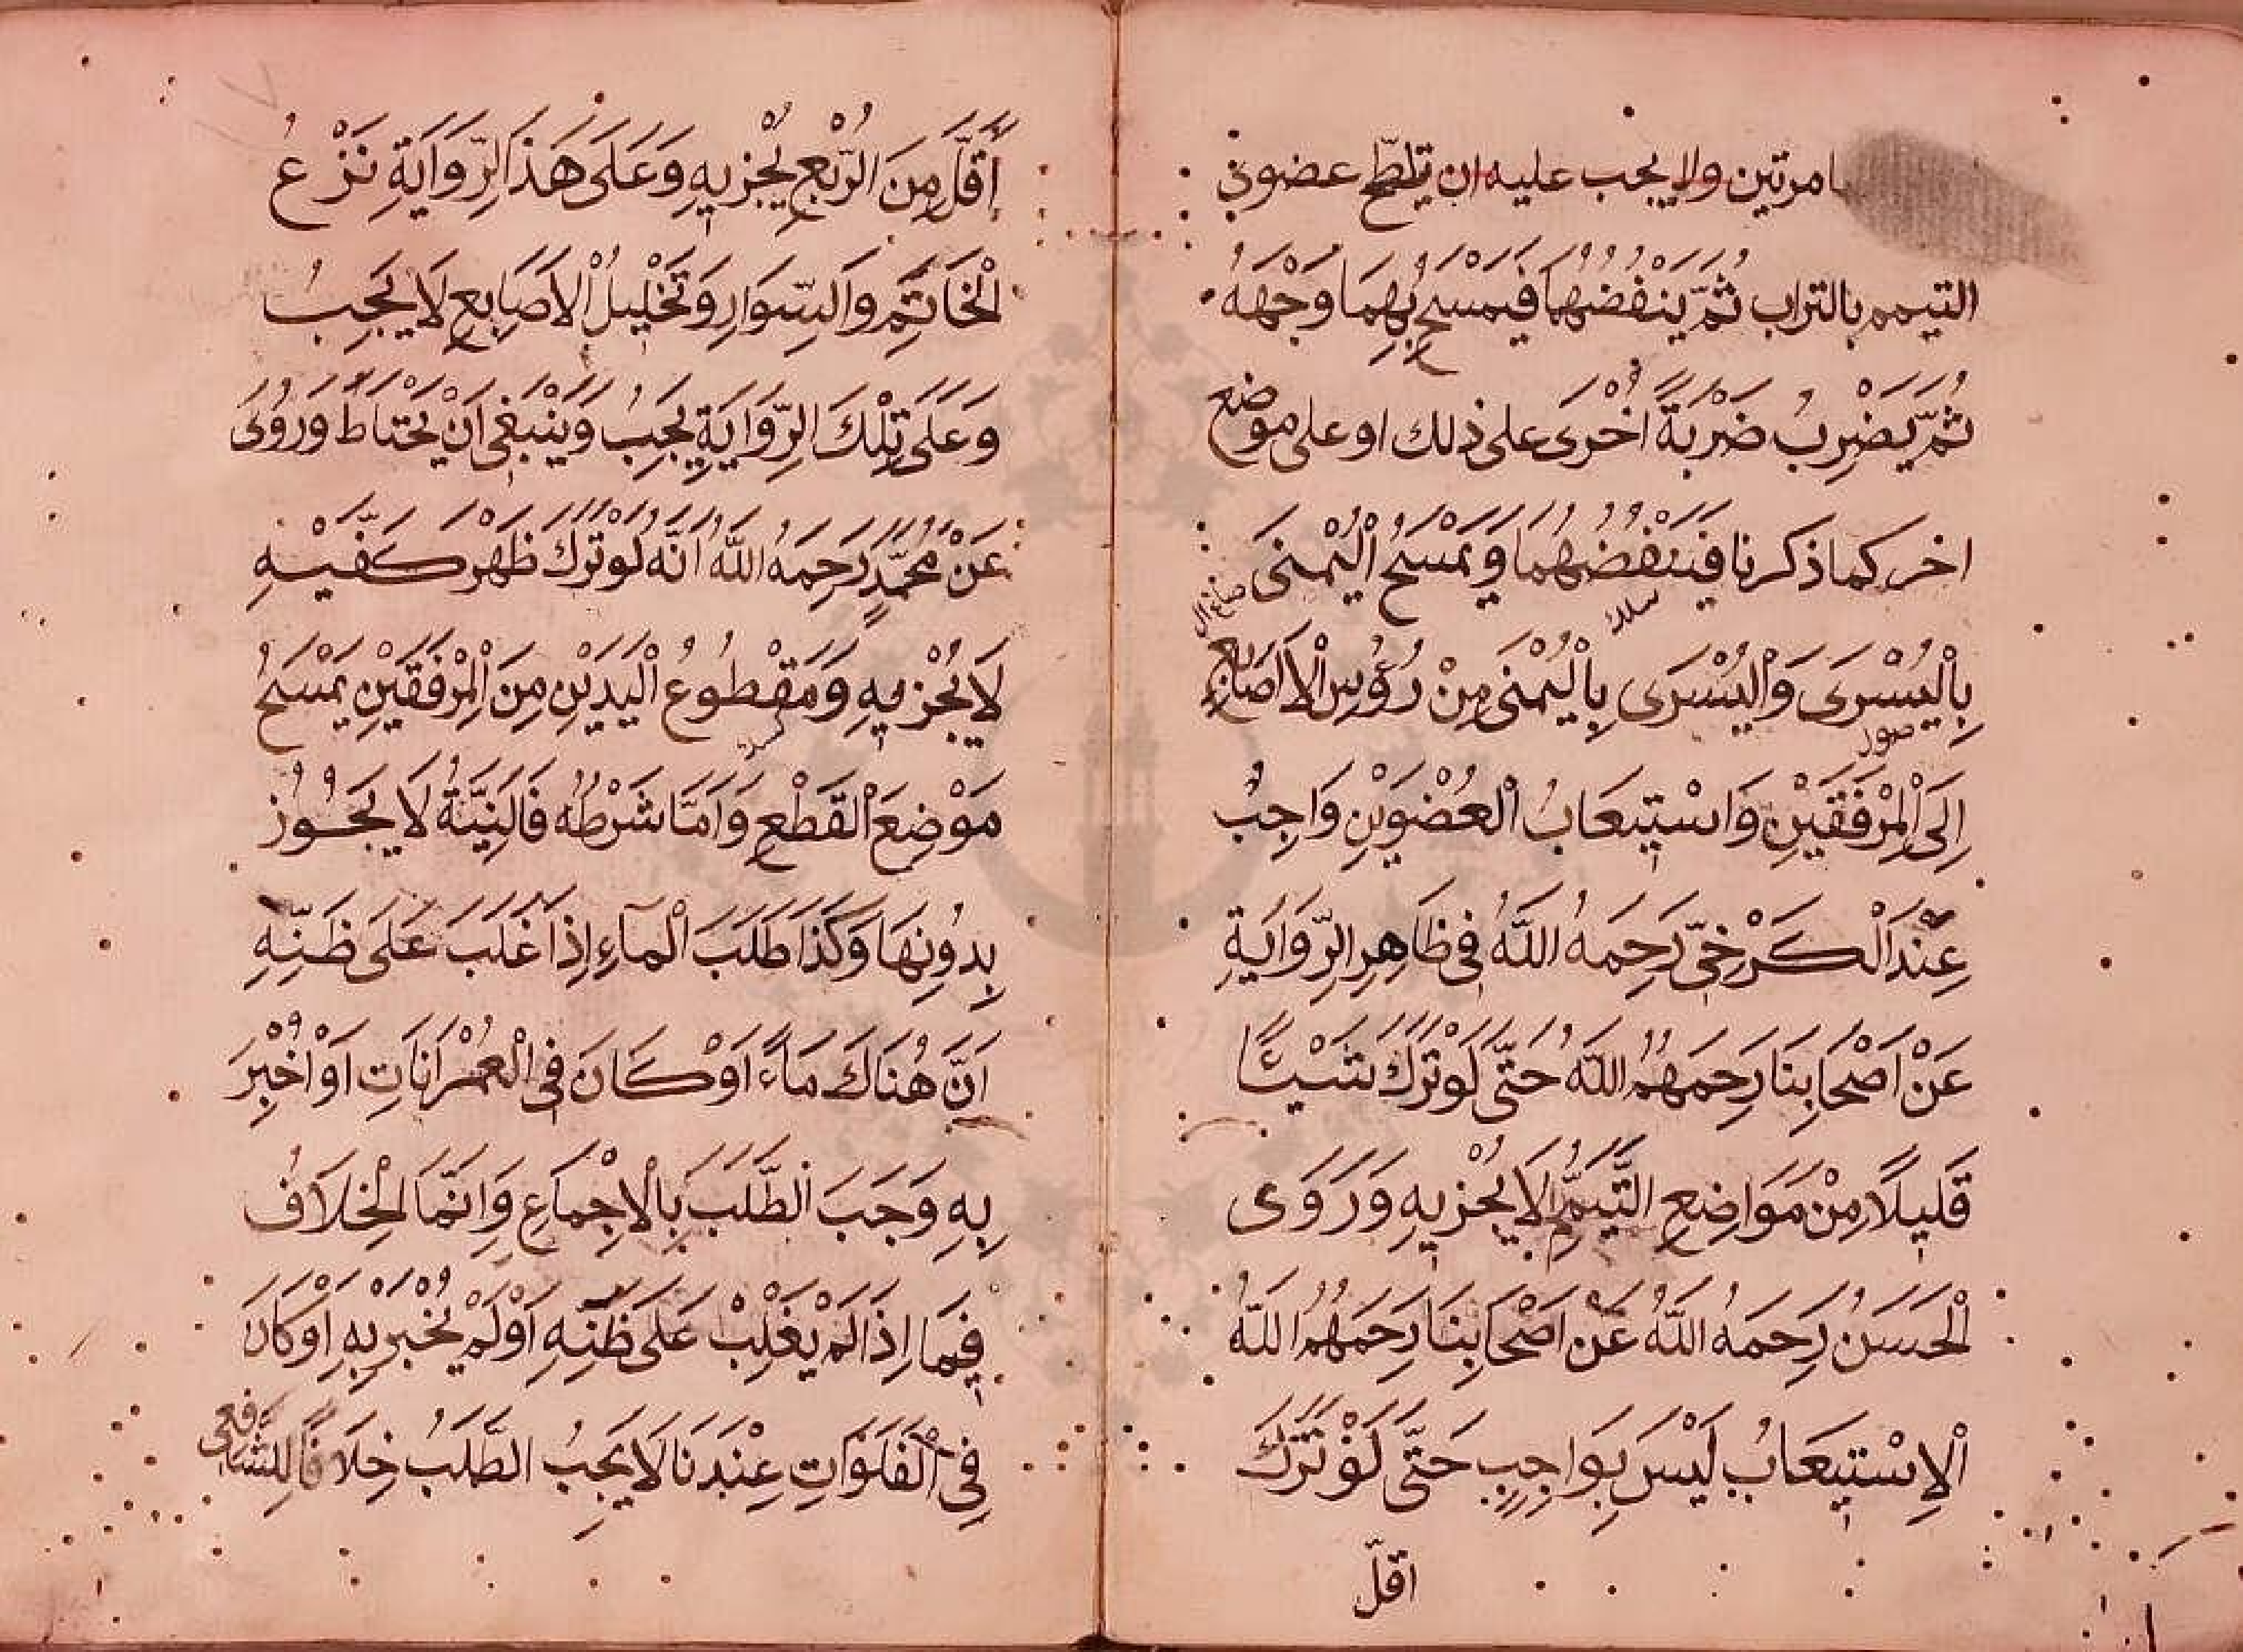 مرتين ولا يجب عليه ان يلطخ عضوي
التيمم بالتراب ثُمَّ يَنْفُضُهُمَا فَيَمْسَحُ بِهِمَا وَجْهَهُ
ثُمَّ يَضْرِبُ ضَرْبَةً اُخْرَى على ذلك او على موضع
اخر كما ذكرنا فَيَنْفُضُهُمَا وَيَمْسَحُ الْيُمْنَى
بِالْيُسْرَى وَالْيُسْرَى بِالْيُمْنَى مِنْ رُؤُسِ الْاَصَابِعِ
اِلَى الْمِرْفَقَيْنِ وَاسْتِيعَابُ الْعُضْوَيْنِ وَاجِبٌ
عِنْدَ الْكَرْخِىِّ رَحِمَهُ اللّٰهُ فِى ظَاهِرِ الرِّوَايَةِ
عَنْ اَصْحَابِنَا رَحِمَهُمُ اللّٰهُ حَتَّى لَوْ تَرَكَ شَيْئًا
قَلِيلًا مِنْ مَوَاضِعِ التَّيَمُّمِ لَا يُجْزِيهِ وَرَوَى
الْحَسَنُ رَحِمَهُ اللّٰهُ عَنْ اَصْحَابِنَا رَحِمَهُمُ اللّٰهُ
الْاِسْتِيعَابُ لَيْسَ بِوَاجِبٍ حَتَّى لَوْ تَرَكَ
اقلّ
اَقَلَّ مِنَ الرُّبْعِ يُجْزِيهِ وَعَلَى هَذَا الرِّوَايَةِ نَزْعُ
الْخَاتَمِ وَالسِّوَارِ وَتَخْلِيلُ الْاَصَابِعِ لَا يَجِبُ
وَعَلَى تِلْكَ الرِّوَايَةِ يَجِبُ وَيَنْبَغِى اَنْ يُحْتَاطَ وَرُوِىَ
عَنْ مُحَمَّدٍ رَحِمَهُ اللّٰهُ اَنَّهُ لَوْ تَرَكَ ظَهْرَ كَفَّيْهِ
لَا يُجْزِيهِ وَمَقْطُوعُ الْيَدَيْنِ مِنَ الْمِرْفَقَيْنِ يَمْسَحُ
مَوْضِعَ الْقَطْعِ وَاَمَّا شَرْطُهُ فَالنِّيَّةُ لَا يَجُوزُ
بِدُونِهَا وَكَذَا طَلَبُ الْمَآءِ اِذَا غَلَبَ عَلَى ظَنِّهِ
اَنَّ هُنَاكَ مَاءً اَوْ كَانَ فِى الْعُمْرَانَاتِ اَوْ اُخْبِرَ
بِهِ وَجَبَ الطَّلَبُ بِالْاِجْمَاعِ وَاِنَّمَا الْخِلَافُ
فِيمَا اِذَا لَمْ يَغْلِبْ عَلَى ظَنِّهِ اَوْ لَمْ يُخْبَرْ بِهِ اَوْ كَانَ
فِى الْفَلَوَاتِ عِنْدَنَا لَا يَجِبُ الطَّلَبُ خِلَافًا لِلشَّافِعِى